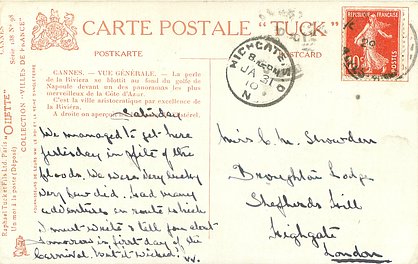 CARTE POSTALE "TUCK"
POSTKARTE
POSTCARD
CANNES
Série 118 Nº 98
Raphael Tuck et Fils, Ltd, Paris
Un mot à la poste (Déposé)
"OILETTE"
COLLECTION "VILLES DE FRANCE"
CANNES. — VUE GÉNÉRALE. — La perle
de la Riviera se blottit au fond du golfe de
Napoule devant un des panoramas les plus
merveilleux de la Côte d'Azur.
C'est la ville aristocratique par excellence de
la Riviera.
A droite on aperçoit
Saturday
We managed to get here
yesterday in spite of the
floods. We were very lucky
very few did. Had many
adventures on route which
I must write & tell you about
tomorrow is first day of the
Carnival.
HIGHGATE
JA 31
10
N.
10
Miss C. M. Snowden
Broughton Lodge
Shepherds Hill
Highgate
London